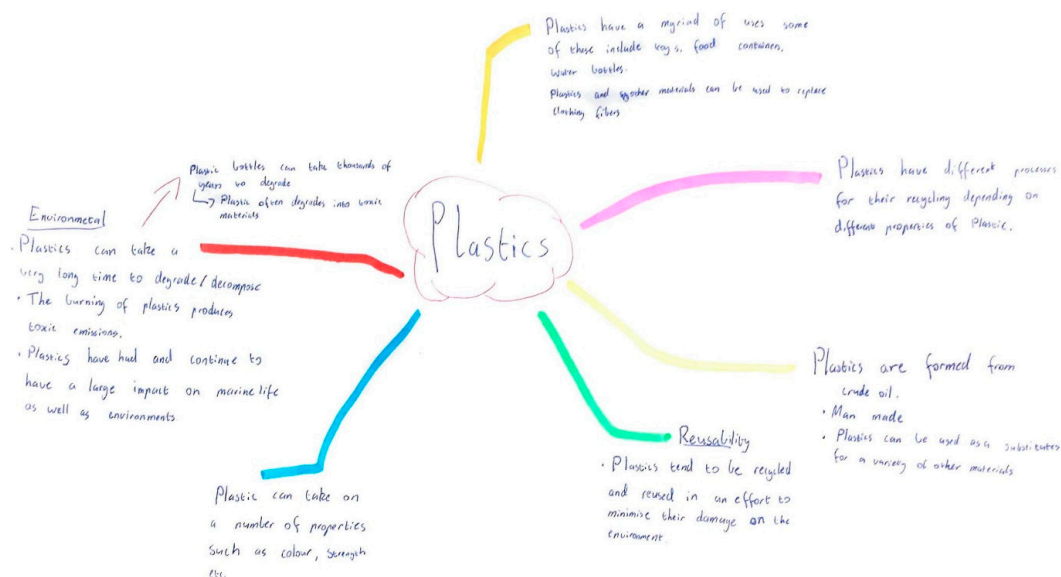 Plastics
Plastics have a myriad of uses some
of these include toys, food containers,
water bottles.
Plastics and other materials can be used to replace
clothing fibers
Plastics have different processes
for their recycling depending on
different properties of Plastic.
Plastics are formed from
crude oil.
• Man made
• Plastics can be used as a substitutes
for a variety of other materials
Reusability
• Plastics tend to be recycled
and reused in an effort to
minimise their damage on the
environment.
Plastic can take on
a number of properties
such as colour, strength
etc.
Environmetal
• Plastics can take a
very long time to degrade/decompose
• The burning of plastics produces
toxic emissions.
• Plastics have had and continue to
have a large impact on marine life
as well as environments
Plastic bottles can take thousands of
years to degrade
Plastic often degrades into toxic
materials